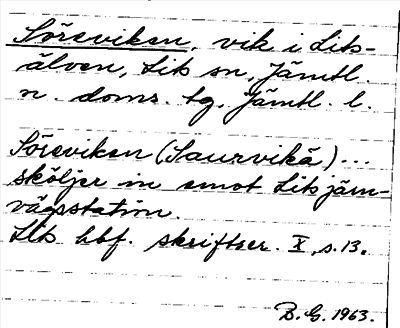 Söreviken, vik i Lits-
älven, Lits sn, Jämtl.
n. doms. tg, Jämtl. l.
Söreviken (Saurvikå)...
sköljer in emot Lits järn-
vägsstation.
Lits hbf. skriftser. X, s. 13.
B. G. 1963.